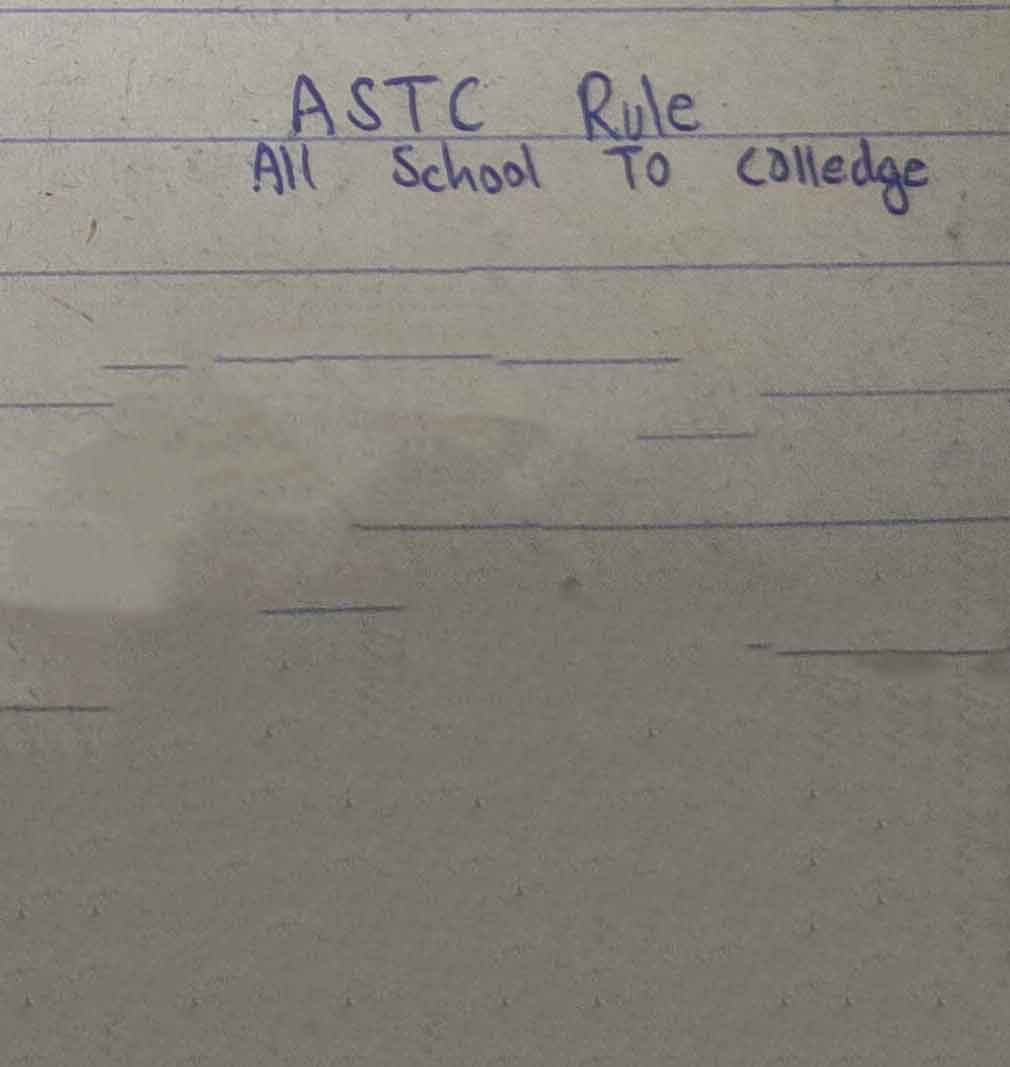 ASTC Rule
All School To colledge